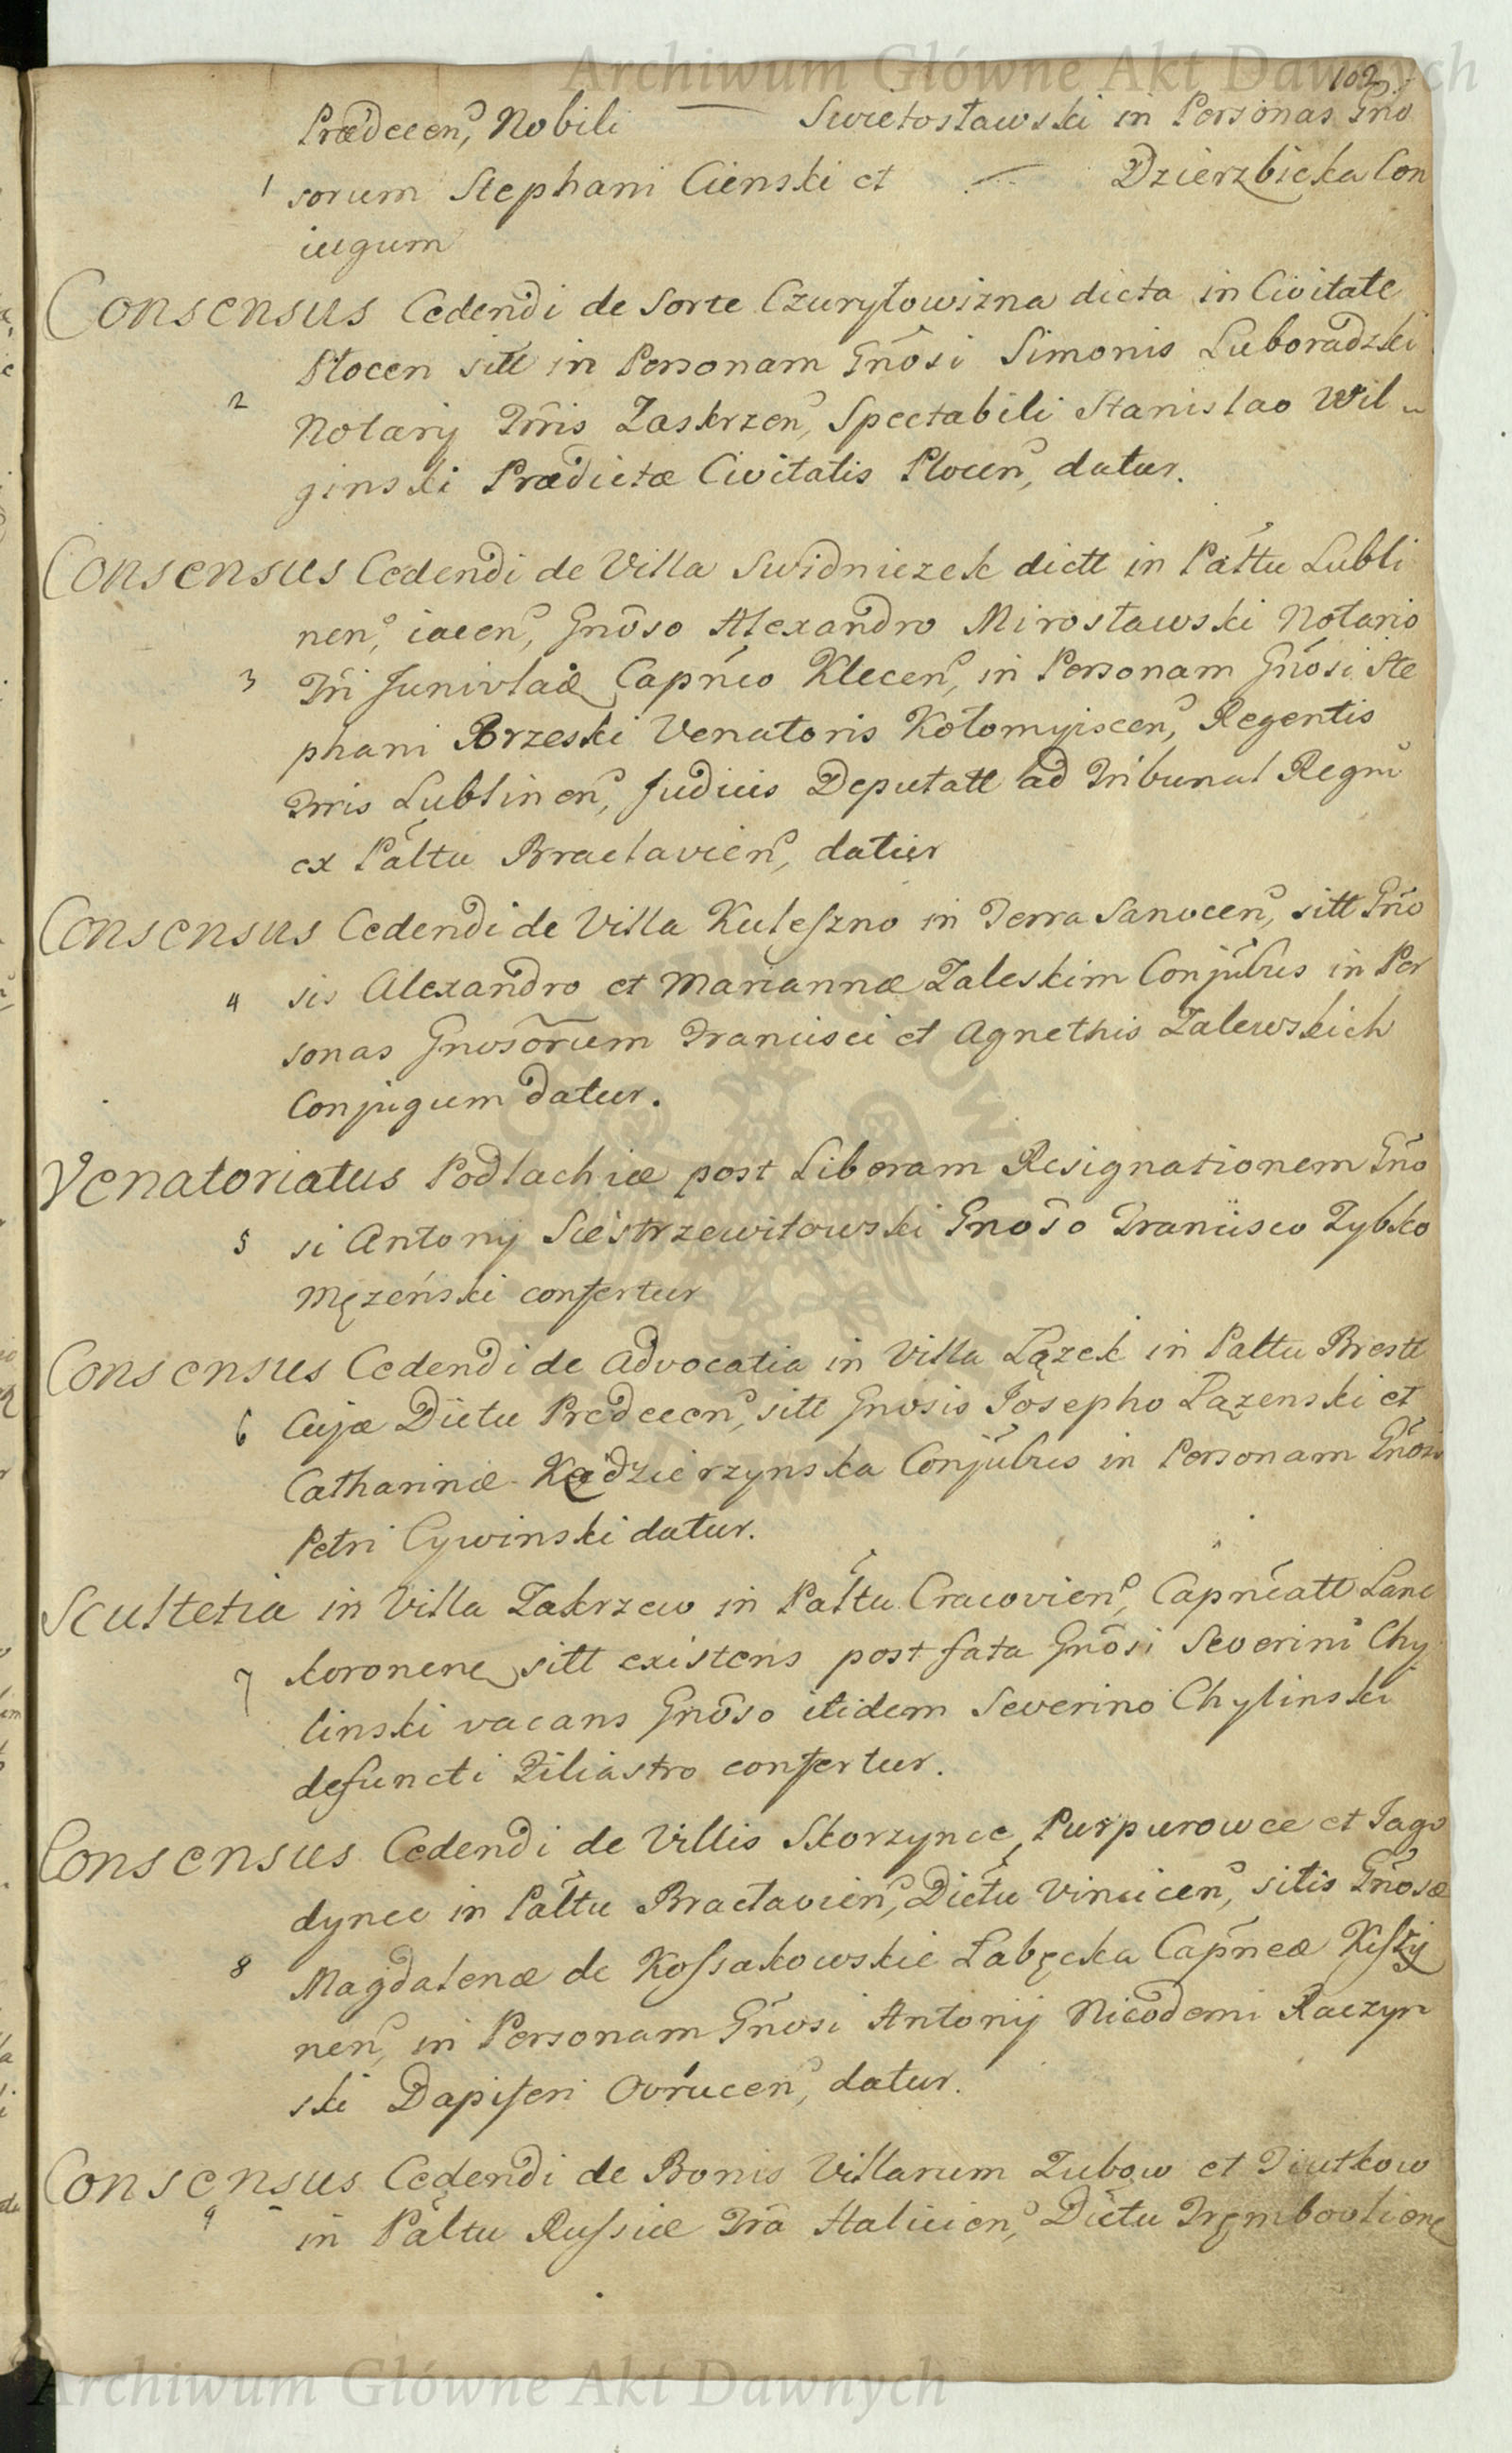 Archiwum Główne Akt Dawnych
102.
Prædecen, Nobili — Swietosławski in Personas Gno
1 sorum Stephani Cienski et — Dzierzbicka Con
iugum
Consensus Cedendi de Sorte Czuryłowizna dicta in Civitate
Plocen sitt in Personam Gnosi Simonis Luboradzki
2 Notarij Trris Zaskrzen, Spectabili Stanislao Wil
ginski Prædictæ Civitatis Plocen, datur.
Consensus Cedendi de Villa Swidniczek dictt in Pałtu Lubli
nen, iacen, Gnoso Alexandro Mirosławski Notario
3 Capneo Klecen, in Personam Gnosi Ste
phani Brzeski Venatoris Kołomyiscen, Regentis
Trris Lublinen, Judicis Deputatt ad Tribunal Regni
ex Pałtu Braclavien, datur
Consensus Cedendi de Villa Kuleszno in Terra Sanocen, sitt Gno
4 sis Alexandro et Mariannæ Zaleskim Conjubus in Per
sonas Gnosorum Francisci et Agnethis Zalewskich
Conjugum datur.
Venatoriatus Podlachiæ post Liberam Resignationem Gno
5 si Antonij Siestrzewitowski Gnoso Francisco Zybko
Męzeński confertur
Consensus Cedendi de Advocatia in Villa Łązek in Paltu Brestt
6 Cujæ Dictu Predecen, sitt Gnosis Josepho Łazenski et
Catharinæ Kędzierzynska Conjubus in Personam Gnosi
Petri Cywinski datur.
Scultetia in Villa Zakrzew in Pałtu Cracovien, Capneatt Lanc
7 koronene sitt existens post fata Gnosi Severini Chy
linski vacans Gnoso itidem Severino Chylinski
defuncti Filiastro confertur.
Consensus Cedendi de Villis Skorzynce, Purpurowce et Jago
dynce in Pałtu Braclavien, Dictu Vinnicen, sitis Gnosæ
8 Magdalenæ de Kossakowskie Łabęcka Capneæ
nen, in Personam Gnosi Antonij Nicodemi Raczyn
ski Dapiferi Ovrucen, datur.
Consensus Cedendi de Bonis Villarum Zubow et Diutkow
9 in Pałtu Russiæ Tra Halicien, Dictu Trembovliene
Archiwum Główne Akt Dawnych